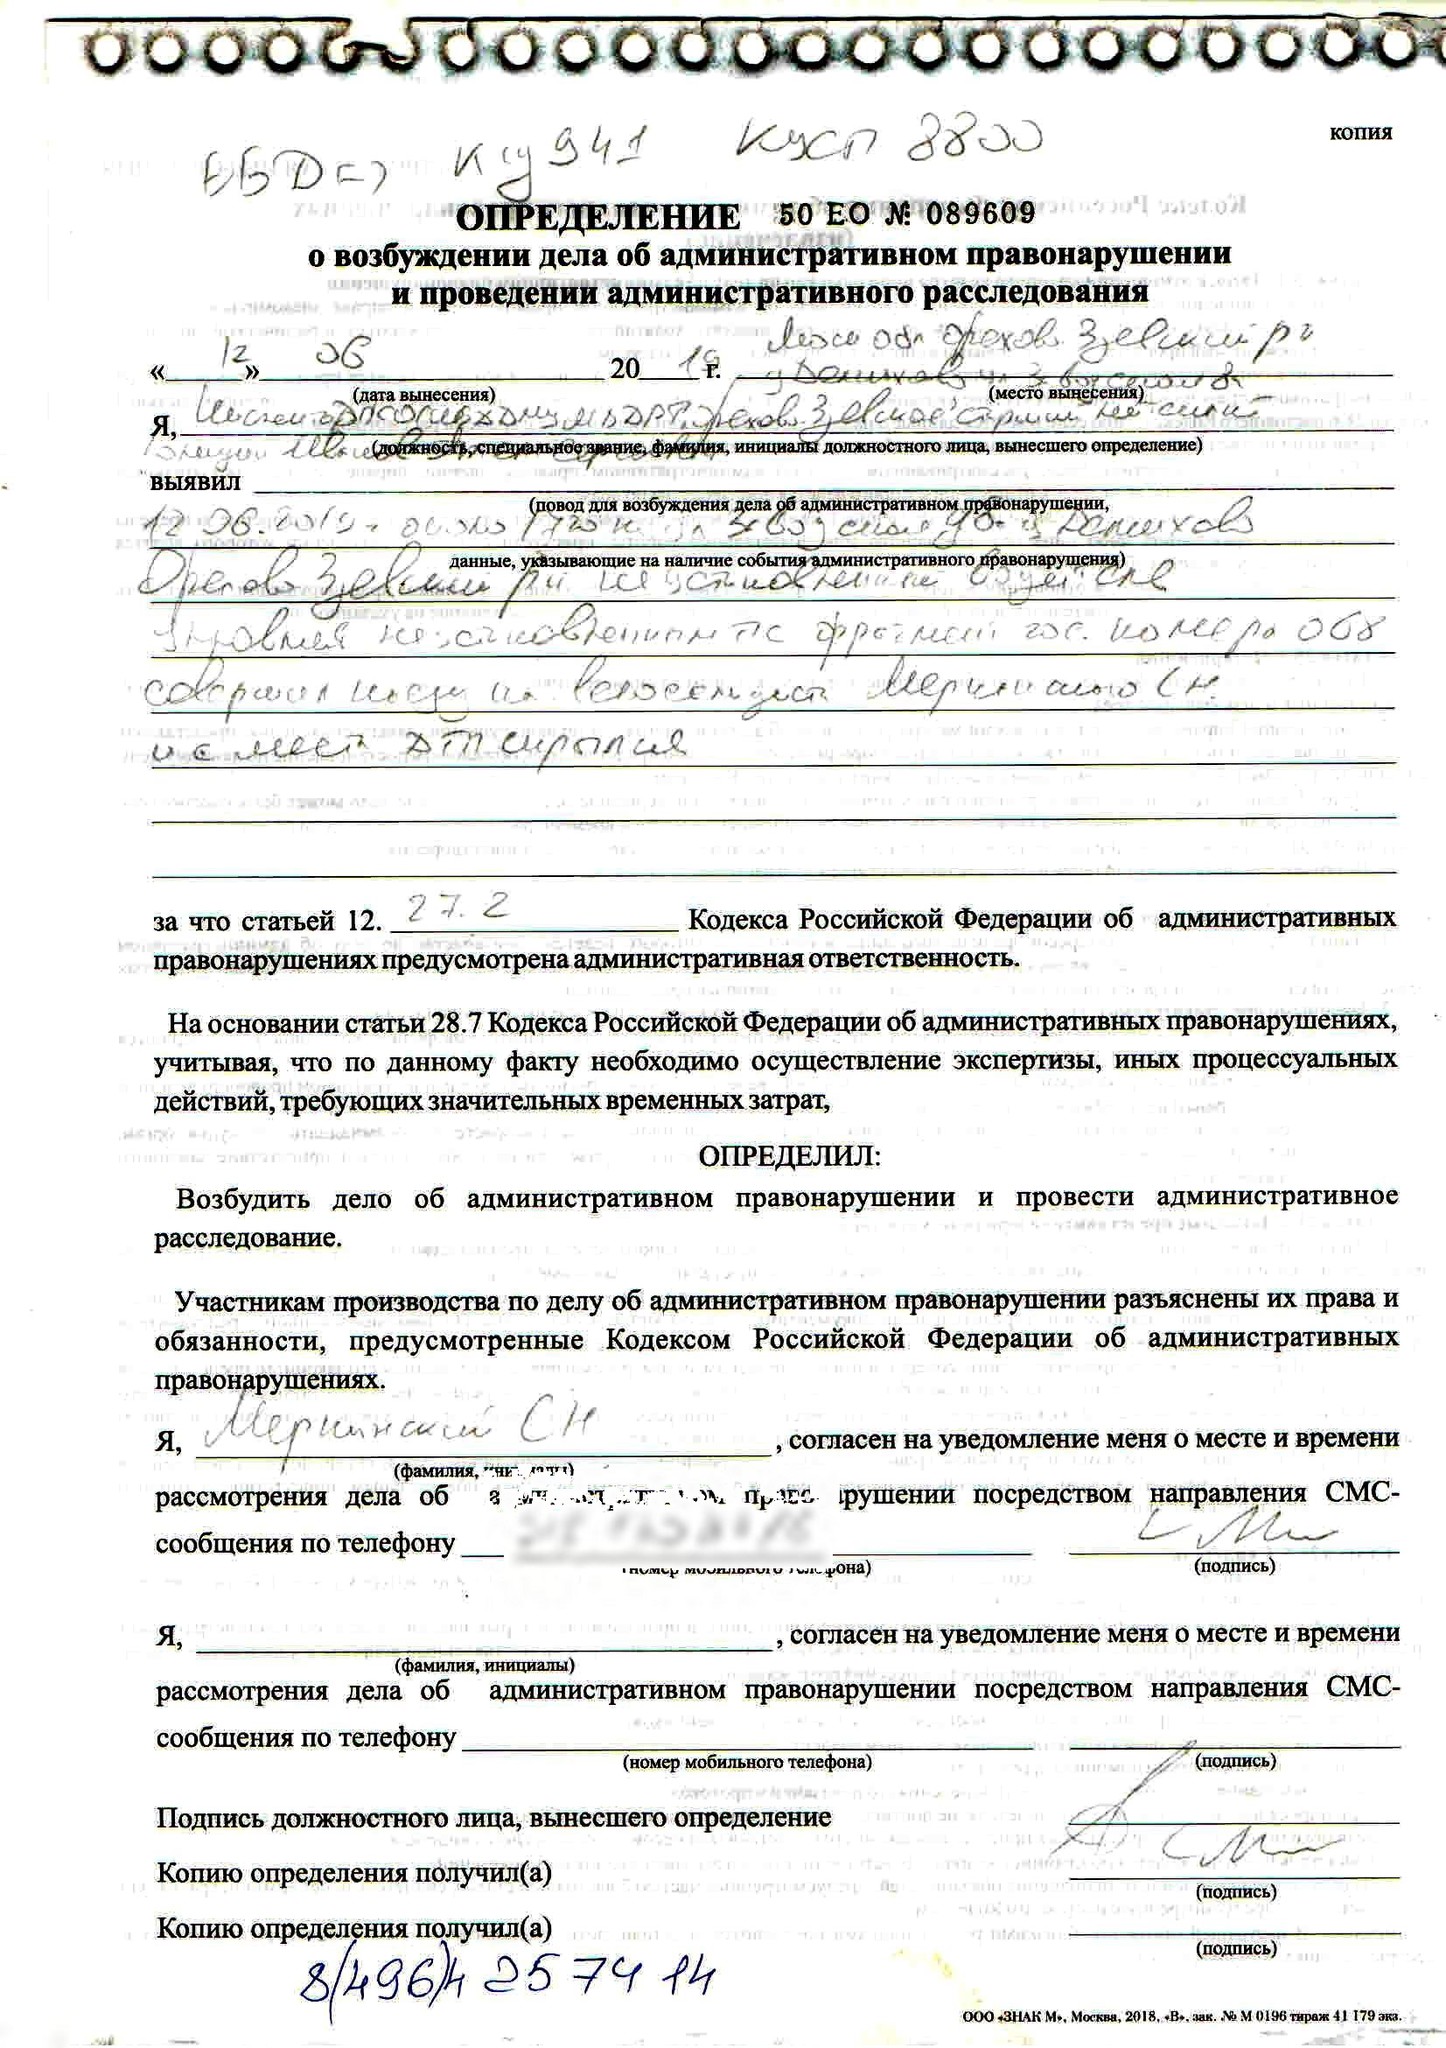 копия
КУСП 8800
941
ОПРЕДЕЛЕНИЕ 50 ЕО № 089609
о возбуждении дела об административном правонарушении
и проведении административного расследования
« 12 » 06 20 19 г. Моск обл Орехово Зуевский р-н
(дата вынесения) (место вынесения)
Я,
(должность, специальное звание, фамилия, инициалы должностного лица, вынесшего определение)
выявил
(повод для возбуждения дела об административном правонарушении,
12.06.2019 г. около
данные, указывающие на наличие события административного правонарушения)
Орехово Зуевский р-н неустановленный водитель
управляя неустановленным тс фрагмент гос. номера 068
совершил наезд на велосипедиста Мернинского С.Н.
и с места ДТП скрылся
за что статьей 12. 27.2 Кодекса Российской Федерации об административных
правонарушениях предусмотрена административная ответственность.
На основании статьи 28.7 Кодекса Российской Федерации об административных правонарушениях,
учитывая, что по данному факту необходимо осуществление экспертизы, иных процессуальных
действий, требующих значительных временных затрат,
ОПРЕДЕЛИЛ:
Возбудить дело об административном правонарушении и провести административное
расследование.
Участникам производства по делу об административном правонарушении разъяснены их права и
обязанности, предусмотренные Кодексом Российской Федерации об административных
правонарушениях.
Я, Мернинский С Н , согласен на уведомление меня о месте и времени
(фамилия, инициалы)
рассмотрения дела об административном правонарушении посредством направления СМС-
сообщения по телефону
(номер мобильного телефона) (подпись)
Я, , согласен на уведомление меня о месте и времени
(фамилия, инициалы)
рассмотрения дела об административном правонарушении посредством направления СМС-
сообщения по телефону
(номер мобильного телефона) (подпись)
Подпись должностного лица, вынесшего определение
Копию определения получил(а)
(подпись)
Копию определения получил(а)
(подпись)
8(496)4 257414
ООО «ЗНАК М», Москва, 2018, «В», зак. № М 0196 тираж 41 179 экз.